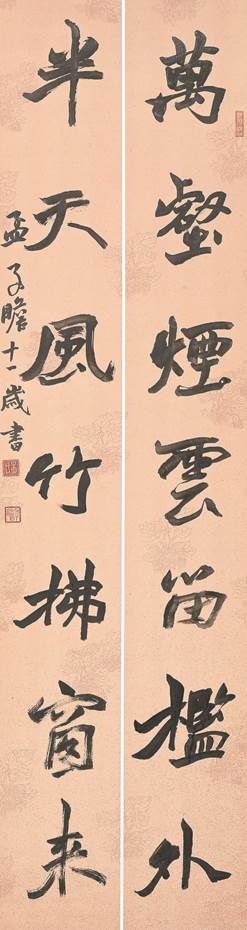 萬壑煙雲留檻外
半天風竹拂窗來
孟子瞻十一歲書